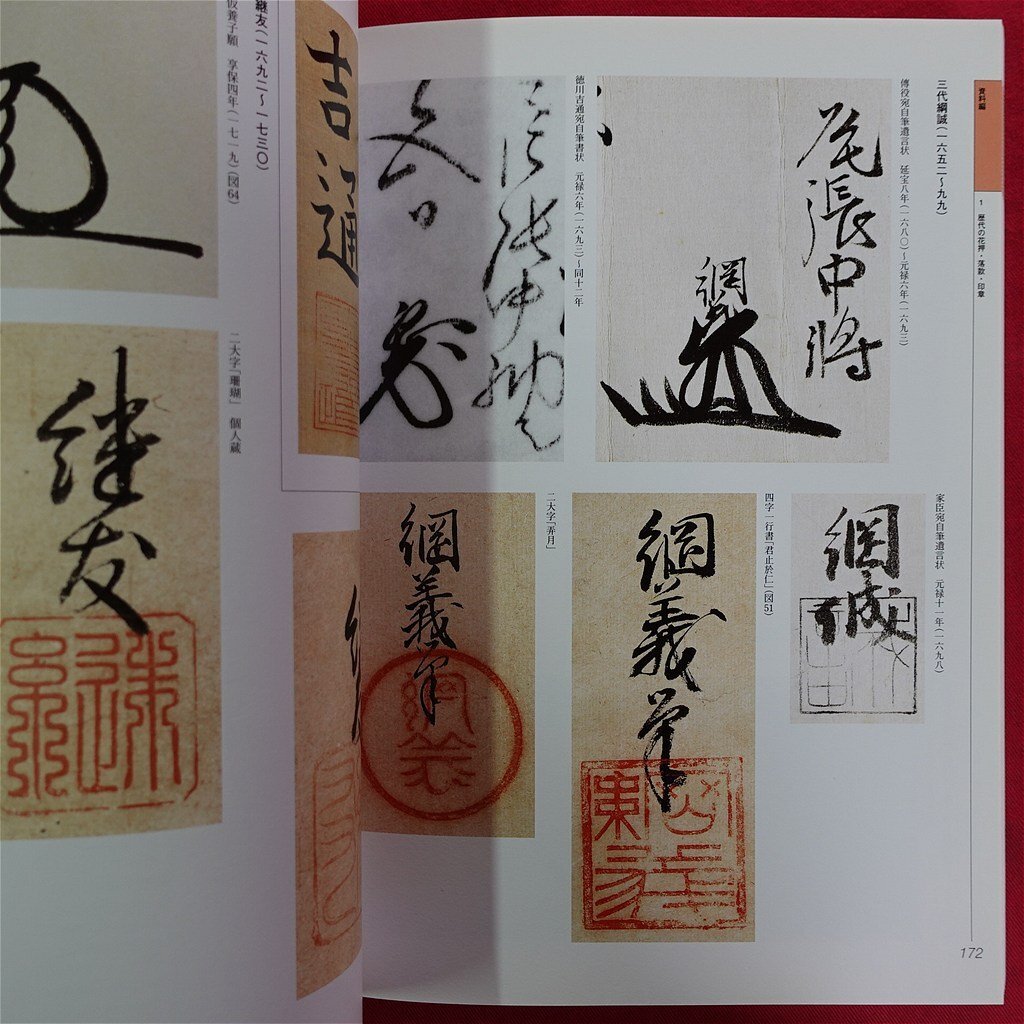 資料編
1 歴代の花押・落款・印章
三代綱誠(一六五二～九九)
傅役宛自筆遺言状 延宝八年(一六八〇)～元禄六年(一六九三)
尾張中将
綱誠
徳川吉通宛自筆書状 元禄六年(一六九三)～同十二年
家臣宛自筆遺言状 元禄十一年(一六九八)
綱誠
四字一行書「君止於仁」(図51)
綱義筆
二大字「弄月」
綱義筆
172
吉通
継友(一六九二～一七三〇)
仮養子願 享保四年(一七一九)(図64)
二大字「珊瑚」 個人蔵
継友